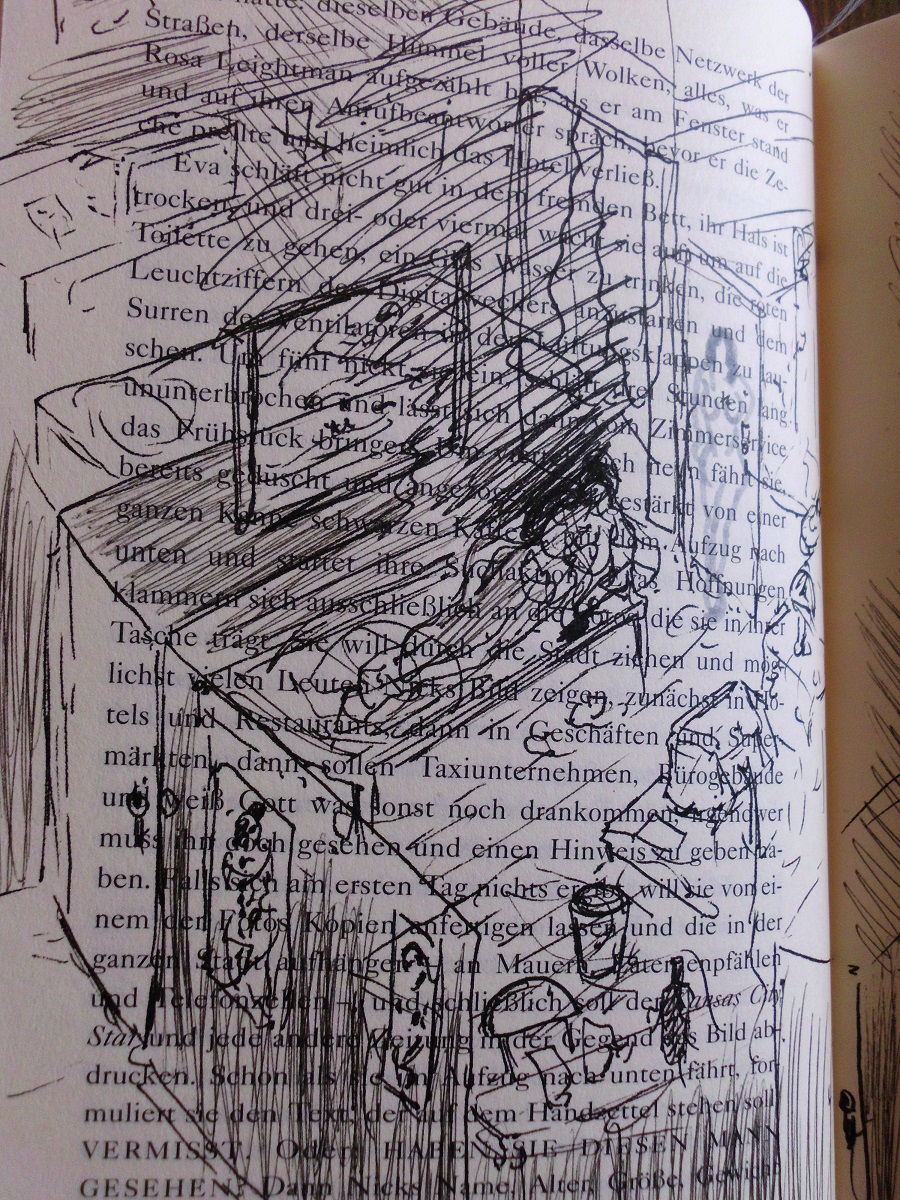 hatte: dieselben Gebäude, dasselbe Netzwerk der
Straßen, derselbe Himmel voller Wolken, alles, was er
Rosa Leightman aufgezählt hat, als er am Fenster stand
und auf ihren Anrufbeantworter sprach, bevor er die Ze-
che prellte und heimlich das Hotel verließ.
Eva schläft nicht gut in dem fremden Bett, ihr Hals ist
trocken, und drei- oder viermal wacht sie auf, um auf die
Toilette zu gehen, ein Glas Wasser zu trinken, die roten
Leuchtziffern des Digitalweckers anzustarren und dem
Surren der Ventilatoren in den Lüftungsklappen zu lau-
schen. Um fünf nickt sie ein, schläft drei Stunden lang
ununterbrochen und lässt sich dann vom Zimmerservice
das Frühstück bringen. Um viertel nach neun fährt sie,
bereits geduscht und angezogen und gestärkt von einer
ganzen Kanne schwarzen Kaffee, mit dem Aufzug nach
unten und startet ihre Suchaktion. Evas Hoffnungen
klammern sich ausschließlich an die Fotos, die sie in ihrer
Tasche trägt. Sie will durch die Stadt ziehen und mög-
lichst vielen Leuten Nicks Bild zeigen, zunächst in Ho-
tels und Restaurants, dann in Geschäften und Super-
märkten, dann sollen Taxiunternehmen, Bürogebäude
und weiß Gott was sonst noch drankommen. Irgendwer
muss ihn doch gesehen und einen Hinweis zu geben ha-
ben. Falls sich am ersten Tag nichts ergibt, will sie von ei-
nem der Fotos Kopien anfertigen lassen und die in der
ganzen Stadt aufhängen – an Mauern, Laternenpfählen
und Telefonzellen –, und schließlich soll der Kansas City
Star und jede andere Zeitung in der Gegend das Bild ab-
drucken. Schon als sie im Aufzug nach unten fährt, for-
muliert sie den Text, der auf dem Handzettel stehen soll.
VERMISST. Oder: HABEN SIE DIESEN MANN
GESEHEN? Dann Nicks Name, Alter, Größe, Gewicht